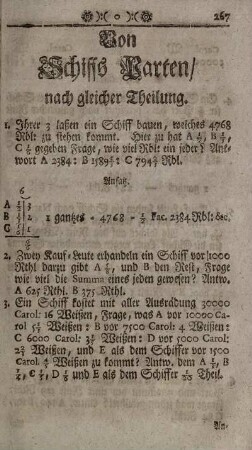 267
Von
Schiffs Parten/
nach gleicher Theilung.
1. Ihrer 3 laßen ein Schiff bauen, welches 4768
Rbl: zu stehen kommt. Hier zu hat A ½, B ⅓,
C ⅙ gegeben Frage, wie viel Rbl: ein jeder? Ant-
wort A 2384: B 1589⅓: C 794⅔ Rbl.
Ansatz.
6
A ½ 3
B ⅓ 2 1 gantzes - 4768 - ½ fac. 2384 Rbl: &c.
C ⅙ 1
6
2. Zwey Kauf-Leute erhandeln ein Schiff vor 1000
Rthl darzu gibt A ⅝, und B den Rest, Frage
wie viel die Summa eines jeden gewesen? Antw.
A 625 Rthl. B 375 Rthl.
3. Ein Schiff kostet mit aller Ausrädung 30000
Carol: 16 Weißen, Frage, was A vor 10000 Ca-
rol Weißen: B vor 7500 Carol: 4 Weißen:
C 6000 Carol: Weißen: D vor 5000 Carol:
Weißen, und E als dem Schiffer vor 1500
Carol Weißen zu kommt? Antw. dem A ⅓, B
¼, C ⅕, D ⅙ und E als dem Schiffer 1/20 Theil.
An-